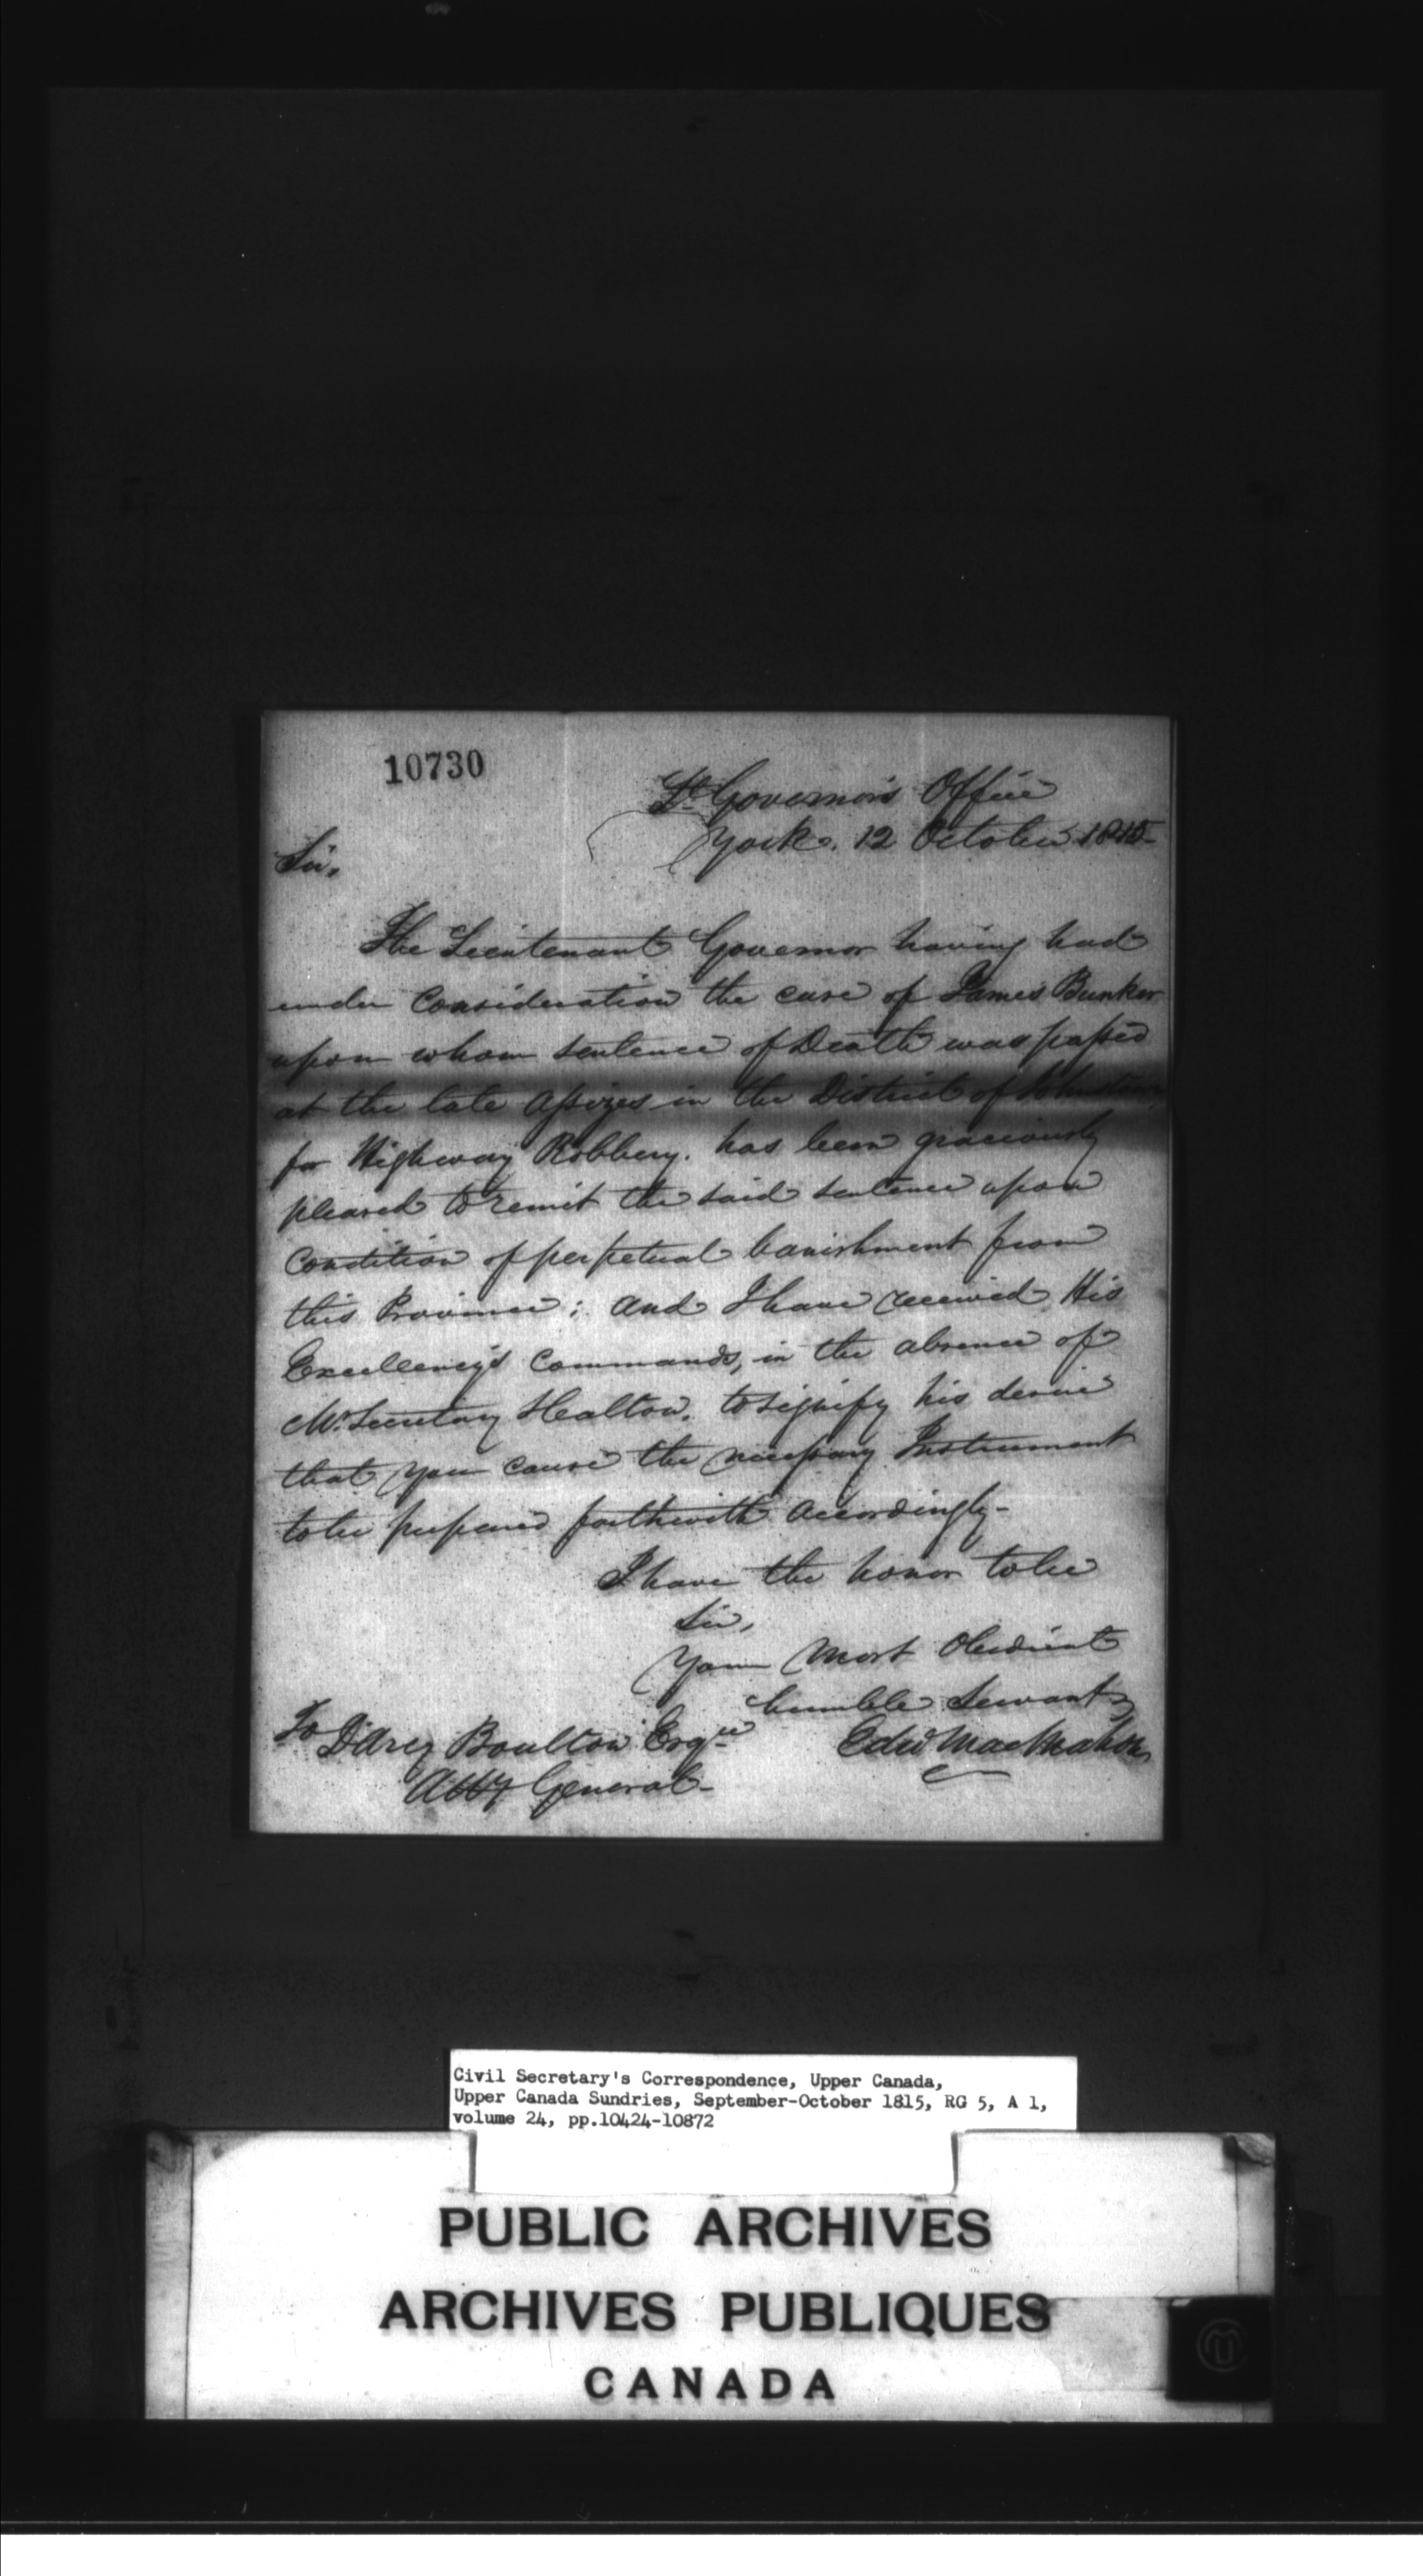 10730
Lt. Governor's Office
York. 12 October 1815
Sir,
The Lieutenant Governor having had
under Consideration the case of James Bunker
upon whom sentence of Death was passed
at the late Assizes in the District of Johnstown
for Highway Robbery. has been graciously
pleased to remit the said sentence upon
Condition of perpetual banishment from
this Province; And I have received His
Excellency's Commands, in the absence of
Mr. Secretary Halton. to signify his desire
that you cause the necessary Instrument
to be prepared forthwith Accordingly-
I have the honor to be
Sir,
Your Most Obedient
humble Servant
To D'Arcy Boulton Esqre
Edwd MacMahon
Atty General-
Civil Secretary's Correspondence, Upper Canada,
Upper Canada Sundries, September-October 1815, RG 5, A 1,
volume 24, pp.10424-10872
PUBLIC ARCHIVES
ARCHIVES PUBLIQUES
CANADA